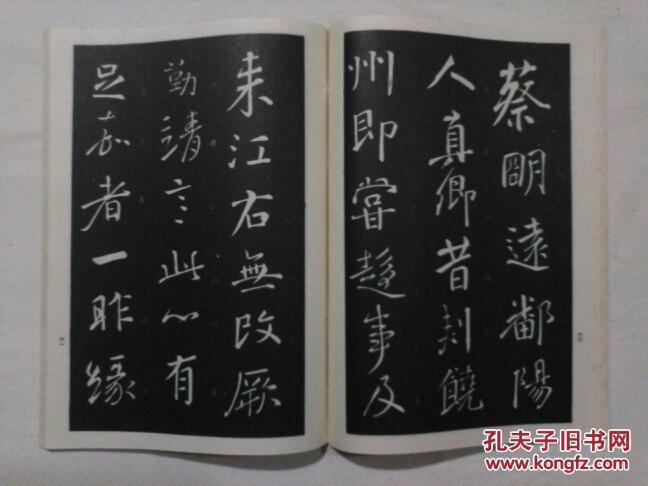 蔡明遠鄱陽
人真卿昔刺饒
州即嘗趍事及
来江右無改厥
勤靖言此心有
足嘉者一昨緣
孔夫子旧书网
www.kongfz.com